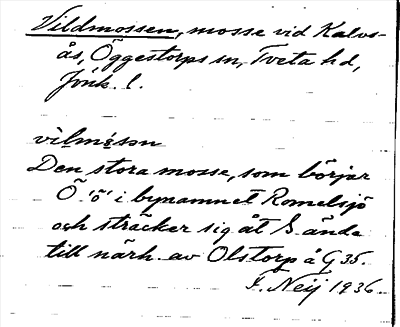 Vildmossen, mosse vid Kalvs-
ås, Öggestorps sn, Tveta hd,
Jönk. l.
vìlmɔ́sən
Den stora mosse, som börjar
Ö "ö" i bynamnet Romelsjö
och sträcker sig åt S ända
till närh. av Olstorp å G 35.
F. Neij 1936.